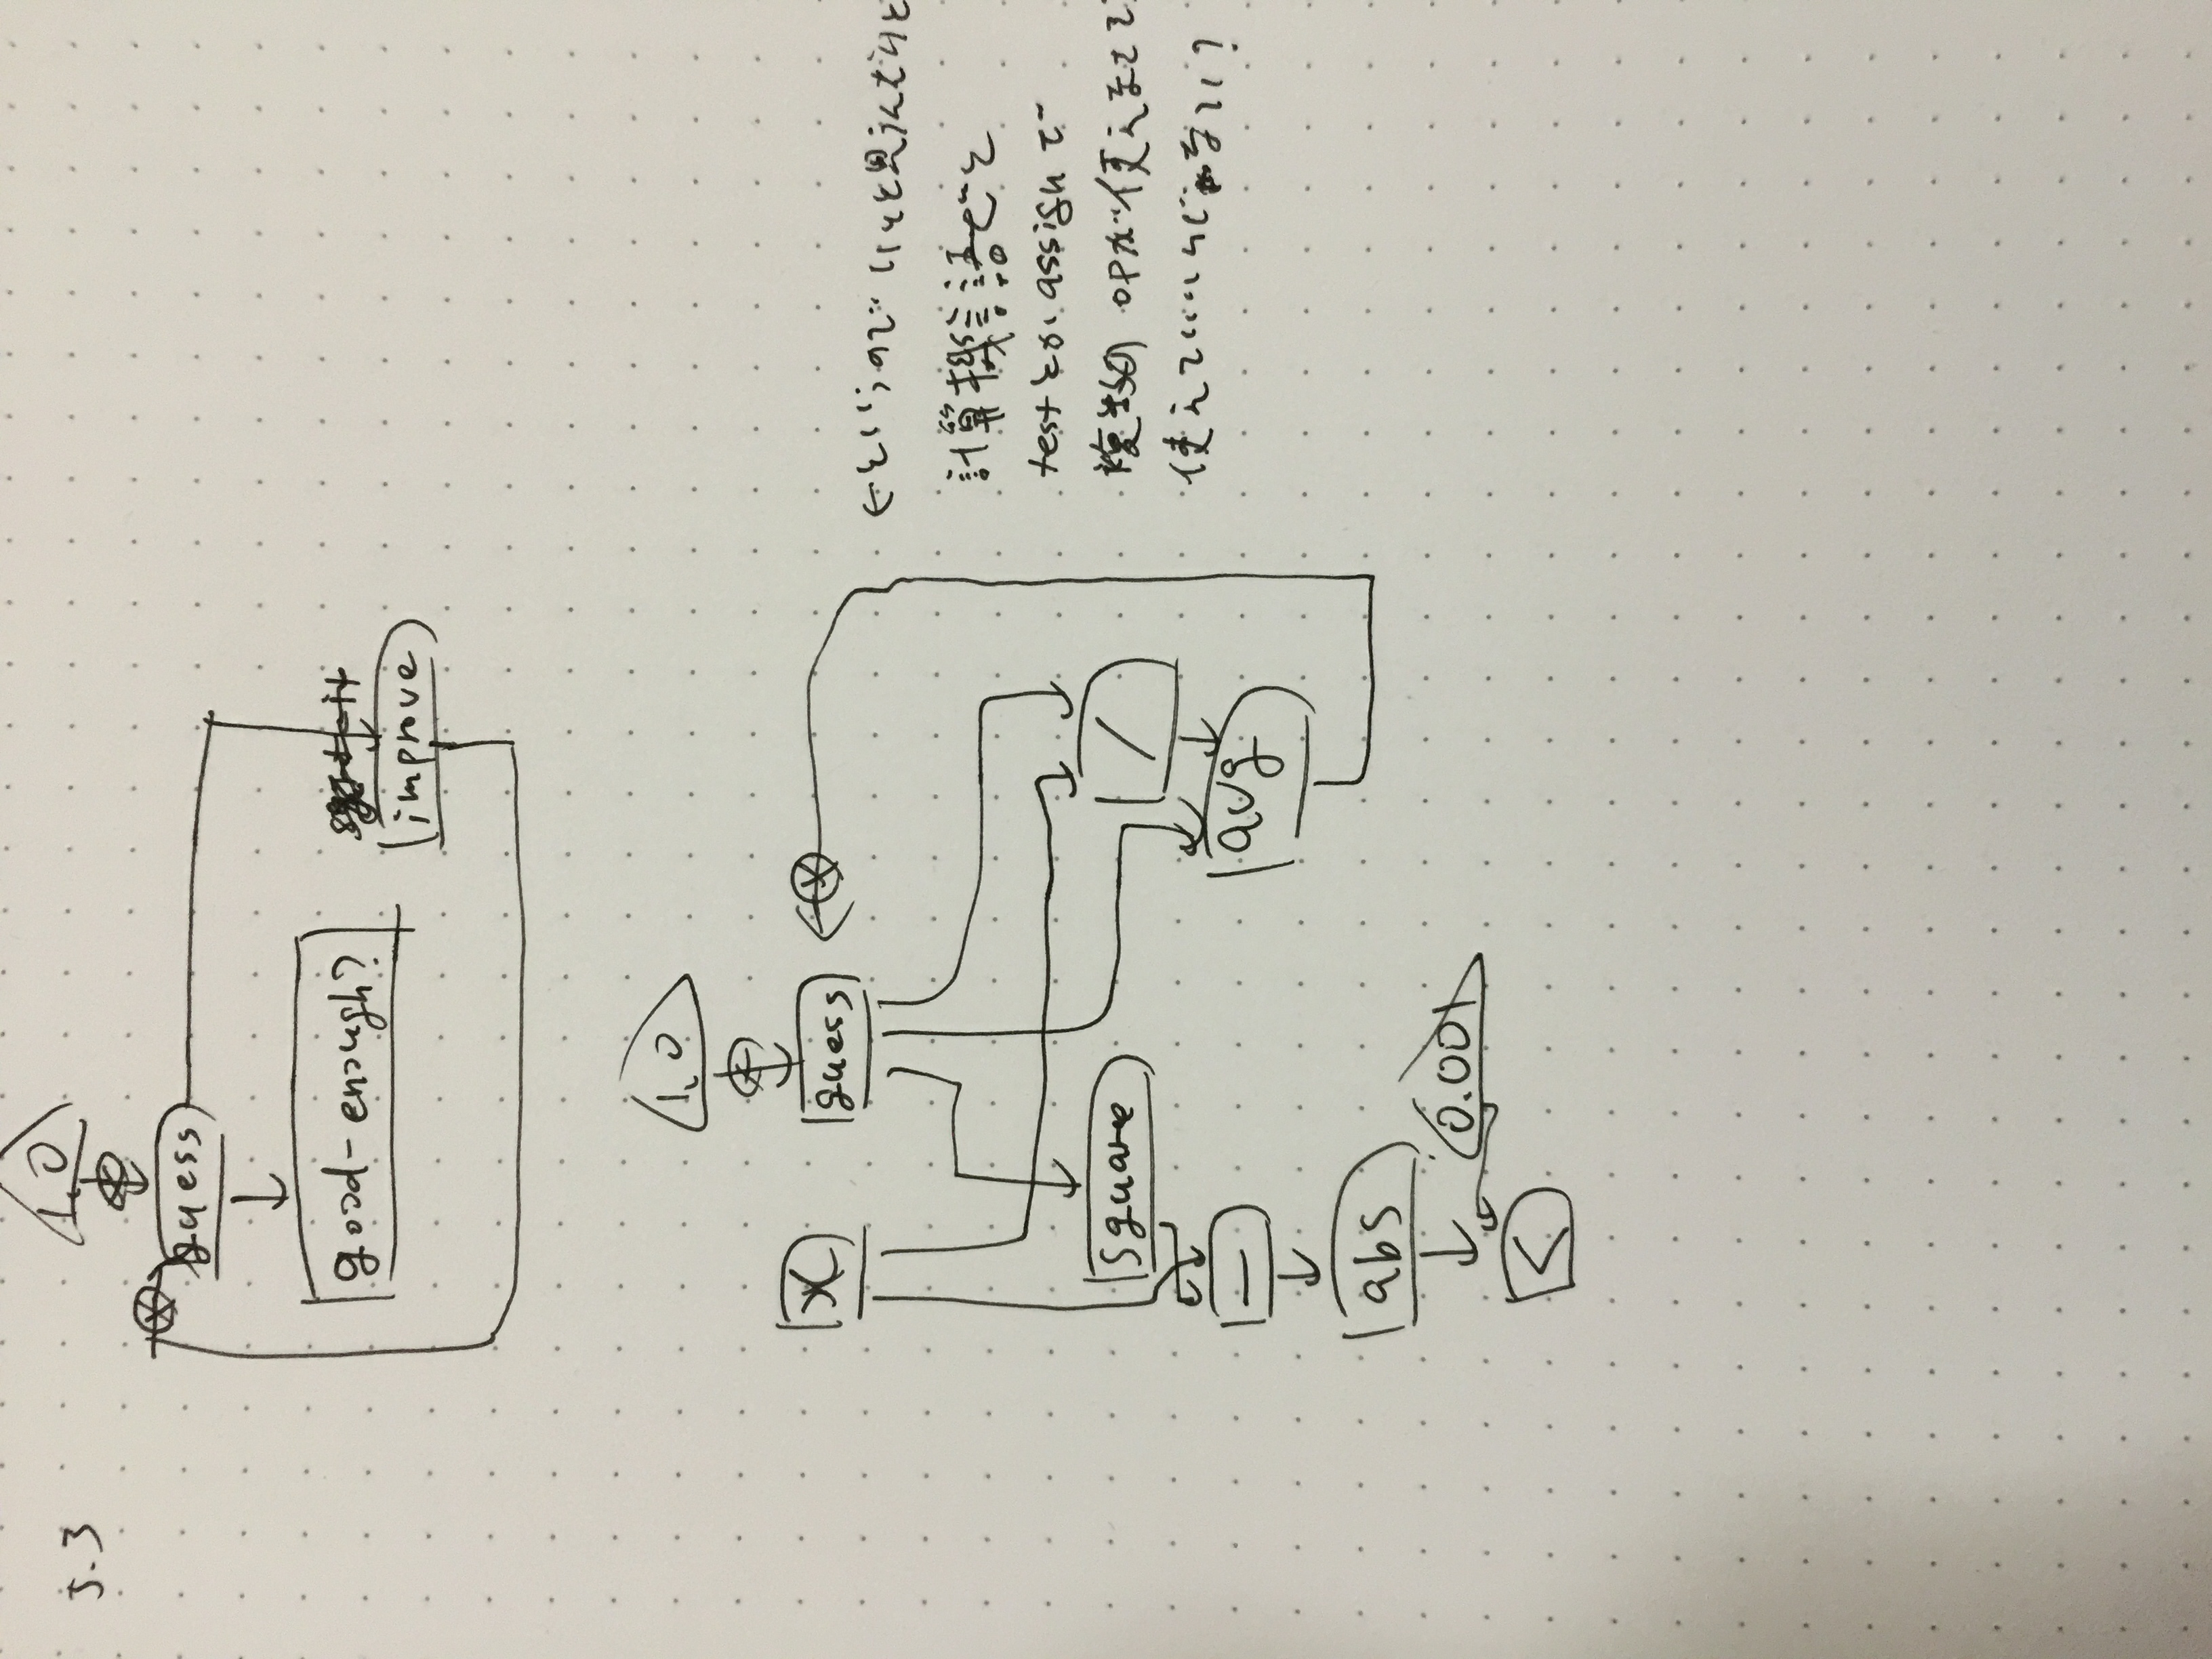 5.3
1.0
guess
good-enough?
improve
1.0
x
guess
square
/
-
avg
abs
0.001
<
←というのでいいと思うんだけど
計算機言語だと
testとか assignで
複数の opが使えなくて
使えていいんじゃない?